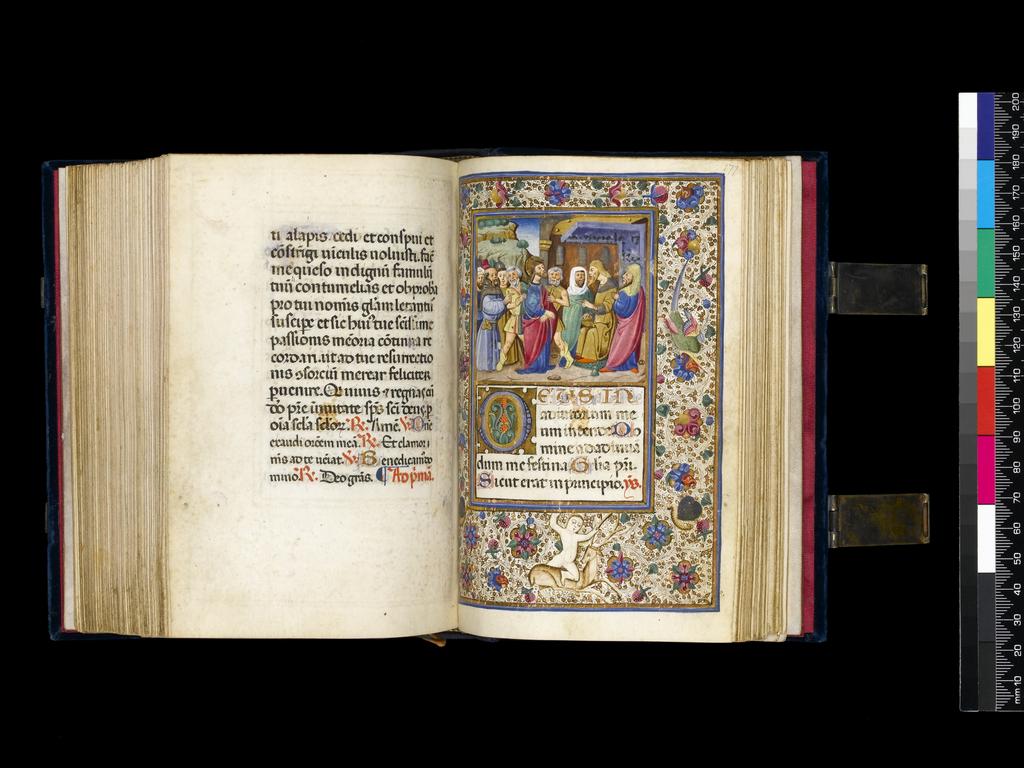 ti alapis cedi et conspui et
cōstrīgi viculis voluisti. fac̄
me queso indignū famulū
tuū contumelias et obproba
pro tui nomīs glām letantū
suscipe et sic huī tue sctissime
passionis mēoria cōtinua re
cordari. ut ad tue resurrectio
nis ꝯsorciū merear feliciter
puenire. Qui uiuis ⁊ regnas cū
dō pr̄e
oīa scl̄a scl̄oꝝ. R̷. Amē. V̷. Dn̄e
exaudi orōem meā. R̷. Et clamor
nīs ad te uēiat. V̷. Benedicamꝰ do
mino R̷. Deo grās. ¶ Ad pmā.
177
DEUS IN
adiutorium me
um intende. Do
mine ad adiuua
dum me festina Glia pr̄i.
Sicut erat in principio. ys.
mm 10 20 30 40 50 60 70 80 90 100 110 120 130 140 150 160 170 180 190 200